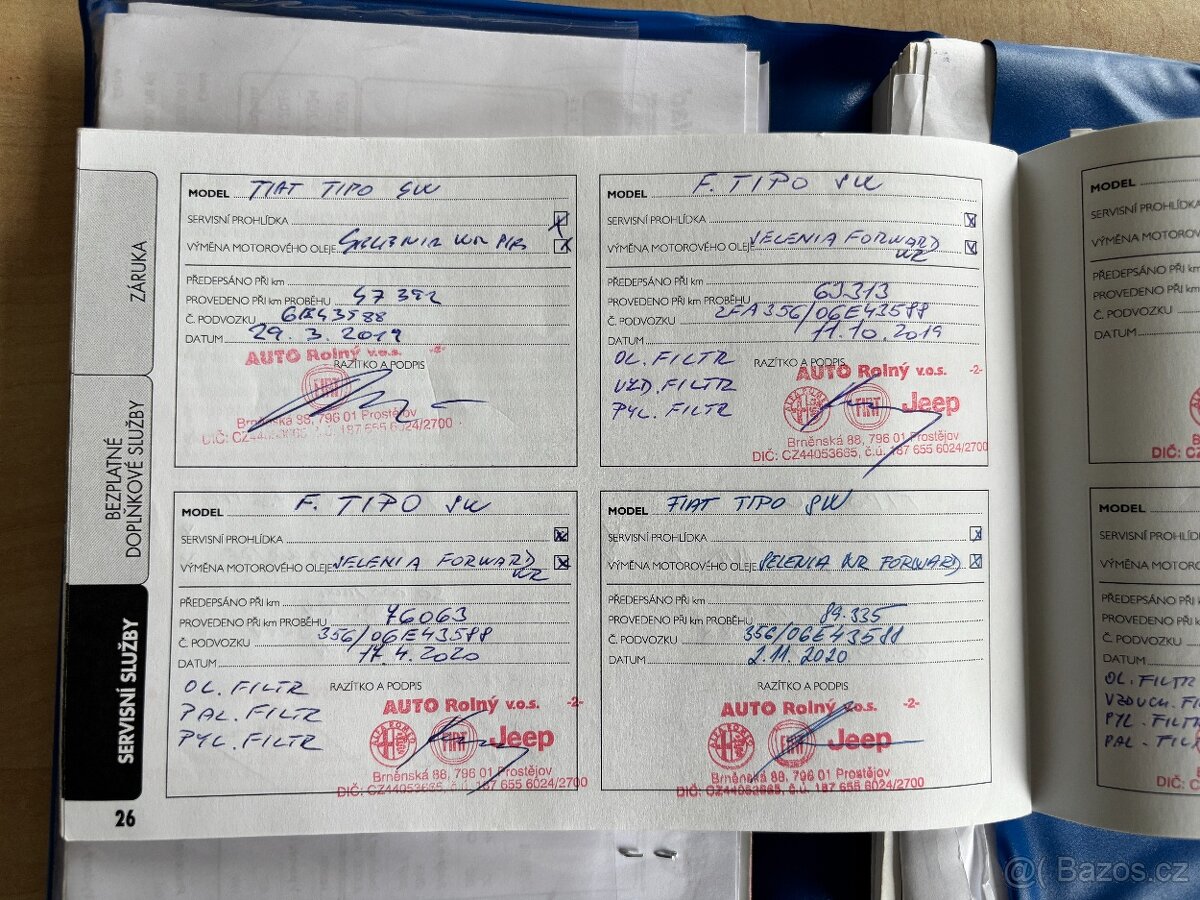 ZÁRUKA
BEZPLATNÉ
DOPLŇKOVÉ SLUŽBY
SERVISNÍ SLUŽBY
26
MODEL FIAT TIPO SW
SERVISNÍ PROHLÍDKA X
VÝMĚNA MOTOROVÉHO OLEJE SELENIA WR X
PŘEDEPSÁNO PŘI km
PROVEDENO PŘI KM PROBĚHU 47 392
Č. PODVOZKU 6E43588
DATUM 29. 3. 2019
AUTO Rolný v.o.s. -2-
RAZÍTKO A PODPIS
FIAT
Brněnská 88, 796 01 Prostějov
DIČ: CZ44053665, č.ú. 187 655 6024/2700
MODEL F. TIPO SW
SERVISNÍ PROHLÍDKA X
VÝMĚNA MOTOROVÉHO OLEJE SELENIA FORWARD X
WR
PŘEDEPSÁNO PŘI km
PROVEDENO PŘI KM PROBĚHU 63.313
Č. PODVOZKU ZFA356/06E43588
DATUM 11.10.2019
OL. FILTR RAZÍTKO A PODPIS
VZD. FILTR
PYL. FILTR
AUTO Rolný v.o.s. -2-
ALFA ROMEO FIAT Jeep
Brněnská 88, 796 01 Prostějov
DIČ: CZ44053665, č.ú. 187 655 6024/2700
MODEL F. TIPO SW
SERVISNÍ PROHLÍDKA X
VÝMĚNA MOTOROVÉHO OLEJE SELENIA FORWARD X
WR
PŘEDEPSÁNO PŘI km
PROVEDENO PŘI KM PROBĚHU 76063
Č. PODVOZKU 356/06E43588
DATUM 17.4.2020
OL. FILTR RAZÍTKO A PODPIS
PAL. FILTR
PYL. FILTR
AUTO Rolný v.o.s. -2-
ALFA ROMEO FIAT Jeep
Brněnská 88, 796 01 Prostějov
DIČ: CZ44053665, č.ú. 187 655 6024/2700
MODEL FIAT TIPO SW
SERVISNÍ PROHLÍDKA X
VÝMĚNA MOTOROVÉHO OLEJE SELENIA WR FORWARD X
PŘEDEPSÁNO PŘI km
PROVEDENO PŘI KM PROBĚHU 89.335
Č. PODVOZKU 356/06E43588
DATUM 2.11.2020
RAZÍTKO A PODPIS
AUTO Rolný v.o.s. -2-
ALFA ROMEO FIAT Jeep
Brněnská 88, 796 01 Prostějov
DIČ: CZ44053665, č.ú. 187 655 6024/2700
MODEL
SERVISNÍ PROHLÍDKA
VÝMĚNA
PŘEDEPSÁNO PŘI km
PROVEDENO PŘI
Č. PODVOZKU
DATUM
DIČ:
MODEL
SERVISNÍ PROHLÍDKA
VÝMĚNA
PŘEDEPSÁNO PŘI km
PROVEDENO PŘI
Č. PODVOZKU
DATUM
OL. FILTR
VZDUCH.
PYL. FILTR
PAL.
DIČ:
Bazos.cz